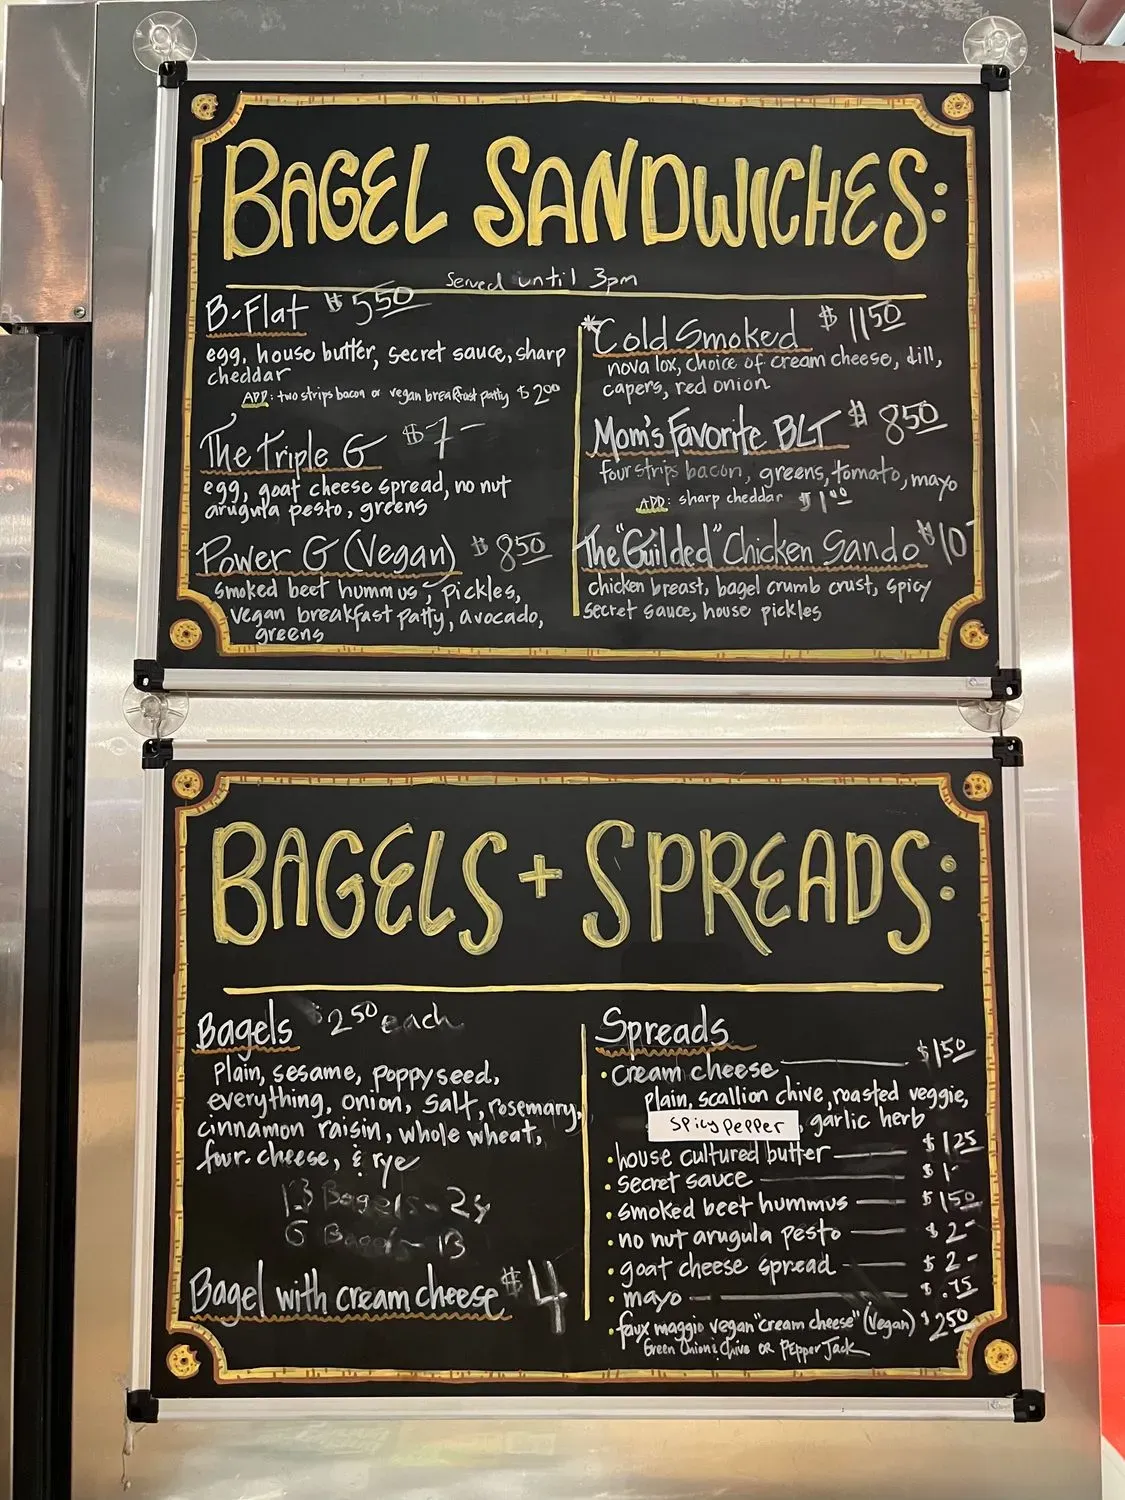 BAGEL SANDWICHES:
Served until 3pm
B-Flat $5.50
egg, house butter, secret sauce, sharp
cheddar
ADD: two strips bacon or vegan breakfast patty $2.00
The Triple G $7-
egg, goat cheese spread, no nut
arugula pesto, greens
Power G (Vegan) $8.50
smoked beet hummus, pickles,
vegan breakfast patty, avocado,
greens
*Cold Smoked $11.50
nova lox, choice of cream cheese, dill,
capers, red onion
Mom's Favorite BLT $8.50
four strips bacon, greens, tomato, mayo
ADD: sharp cheddar $1.00
The "Guilded" Chicken Sando $10-
chicken breast, bagel crumb crust, spicy
secret sauce, house pickles
BAGELS + SPREADS:
Bagels $2.50 each
Plain, sesame, poppyseed,
everything, onion, salt, rosemary,
cinnamon raisin, whole wheat,
four cheese, & rye
13 Bagels - 
6 Bagels - 13
Bagel with cream cheese $4
Spreads
• cream cheese $1.50
plain, scallion chive, roasted veggie,
spicy pepper, garlic herb
• house cultured butter $1.25
• secret sauce $1-
• smoked beet hummus $1.50
• no nut arugula pesto $2-
• goat cheese spread $2-
• mayo $.75
• faux maggio vegan "cream cheese" (vegan) $2.50
Green Onion & Chive OR Pepper Jack